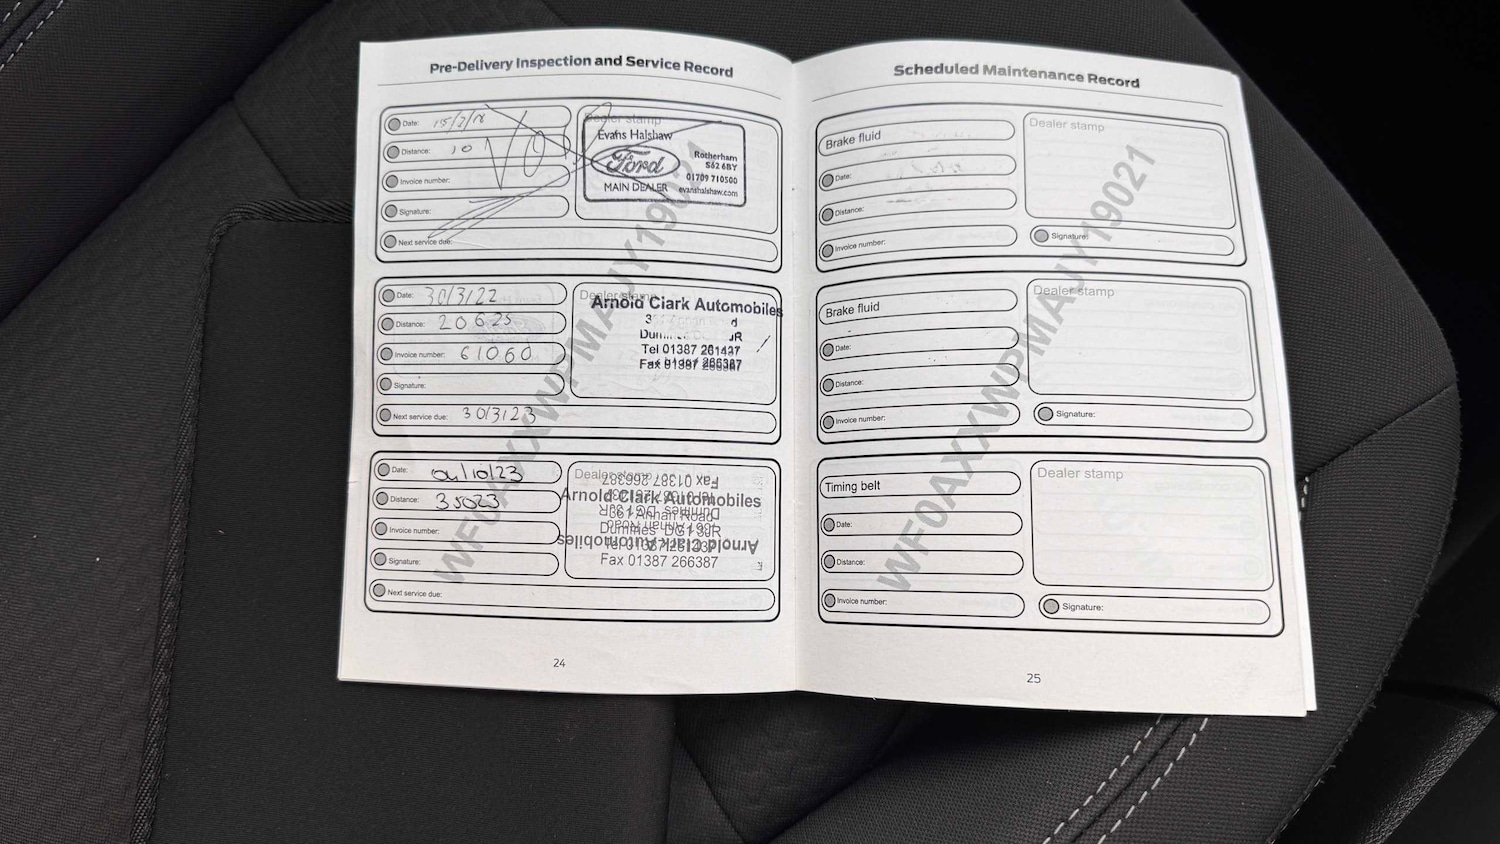 Pre-Delivery Inspection and Service Record
Date: 15/2/18
Distance: 10
Invoice number:
Signature:
Next service due:
Dealer stamp
Evans Halshaw
Ford
MAIN DEALER
Rotherham
S62 6BY
01709 710500
evanshalshaw.com
Date: 30/3/22
Distance: 20625
Invoice number: 61060
Signature:
Next service due: 30/3/23
Dealer stamp
Arnold Clark Automobiles
Tel 01387 261437
Fax 01387 266387
Date: 04/10/23
Distance: 35023
Invoice number:
Signature:
Next service due:
Dealer stamp
Arnold Clark Automobiles
Annan Road
Dumfries DG1 3JR
Tel 01387 261437
Fax 01387 266387
Fax 01387 266387
Arnold Clark Automobiles
WF0AXXWPMAJY19021
24
Scheduled Maintenance Record
Brake fluid
Date:
Distance:
Invoice number:
Dealer stamp
Signature:
Brake fluid
Date:
Distance:
Invoice number:
Dealer stamp
Signature:
Timing belt
Date:
Distance:
Invoice number:
Dealer stamp
Signature:
WF0AXXWPMAJY19021
25